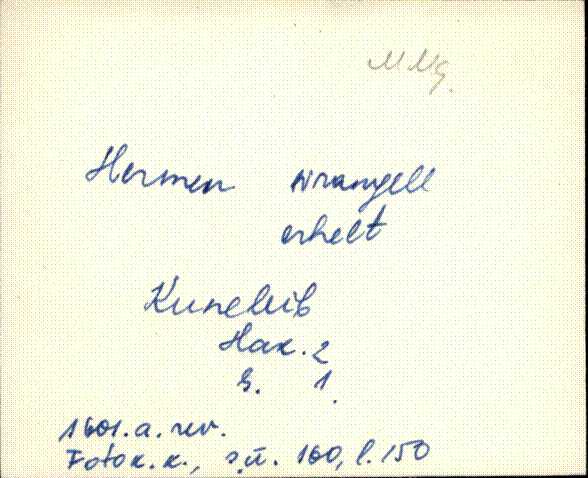 M Mg.
Hermen Wrangell
erhelt
Kuneleib
Hak. 2
S. 1.
1601. a. rev.
Fotok. k., s.ü. 160, l. 150